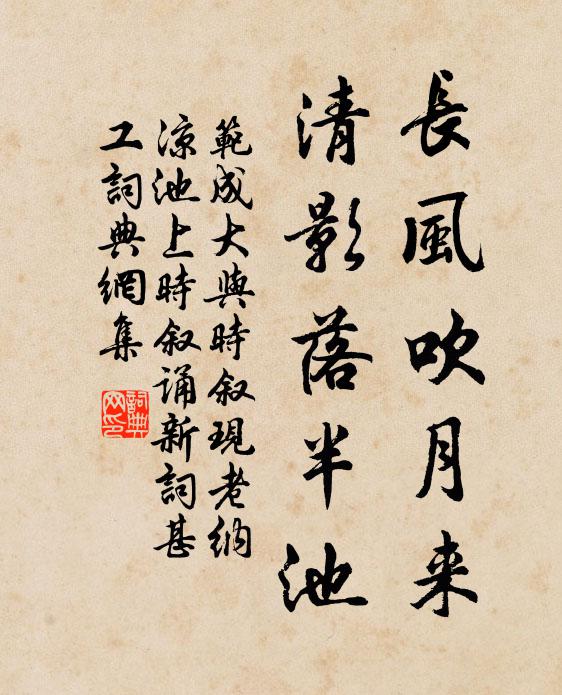 長風吹月来
清影落半池
範成大與時叙現老納
涼池上時叙誦新詞甚
工詞典網集
詞典网印